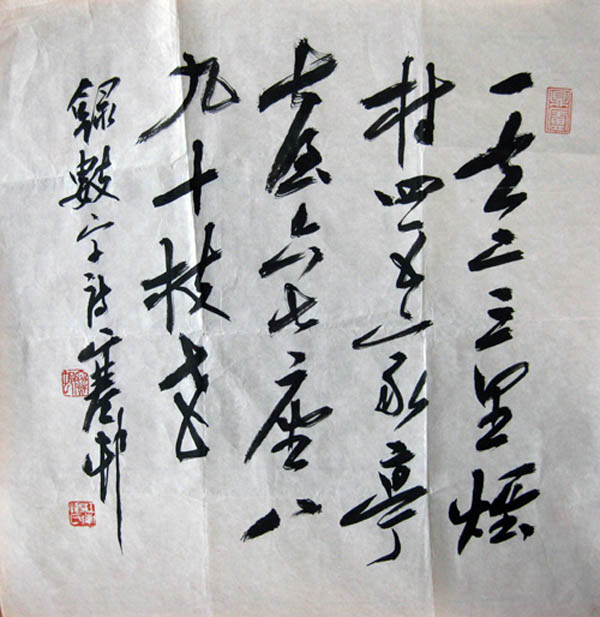 一去二三里煙
村四五家亭
臺六七座八
九十枝花
錄數字詩邨